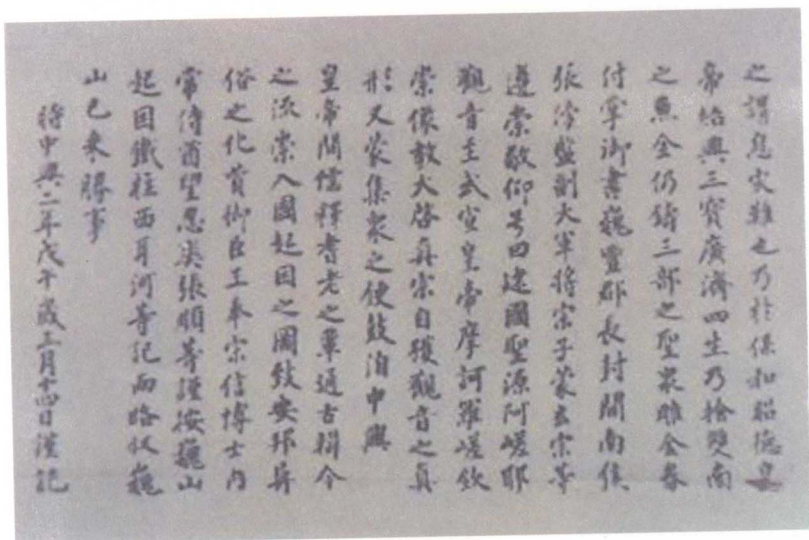 之謂息灾難也乃於保和昭德皇
帝紹興三寶廣濟四生乃捨雙南
之魚金仍鑄三部之聖衆雕金券
付掌御書巍豐郡長封開南侯
張傍監副大軍將宗子蒙玄宗等
遵崇敬仰号曰建國聖源阿嵯耶
觀音至武宣皇帝摩訶羅嵯欽
崇像教大啓真宗自獲觀音之真
形又蒙集衆之使鼓洎中興
皇帝問儒釋耆老之輩通古辯今
之流崇入國起因之圖致安邦異
俗之化賛御臣王奉宗信博士內
常侍酋望忍爽張順等謹按巍山
起因鐵柱西耳河等記而略叙巍
山已來勝事
時中興二年戊午歲三月十四日謹記